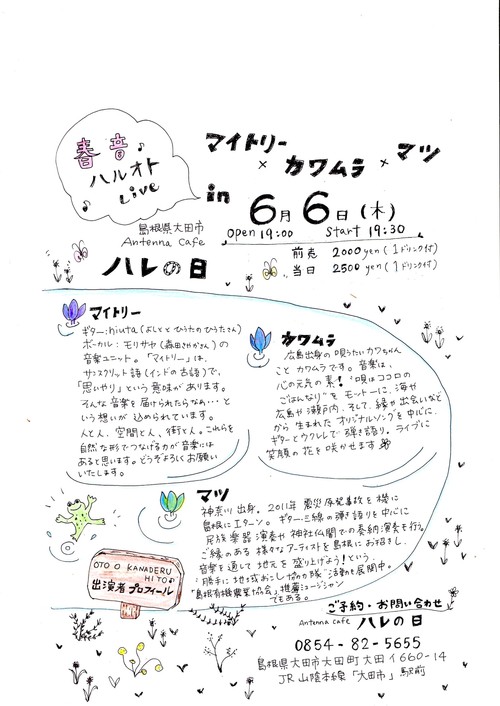 春音
ハルオト
Live
マイトリー
×
カワムラ
×
マツ
in
6月6日(木)
open 19:00 Start 19:30
島根県大田市
Antenna Cafe
ハレの日
前売 2000yen (1ドリンク付)
当日 2500yen (1ドリンク付)
マイトリー
ギター:hiuta(よしとと ひうたの ひうたさん)
ボーカル:モリサヤ(森田さやかさん)の
音楽ユニット。「マイトリー」は、
サンスクリット語(インドの古語)で、
「思いやり」という意味があります。
そんな音楽を届けられたらなぁ…と
いう想いが込められています。
人と人、空間と人、街と人。これらを
自然な形でつなげる力が音楽には
あると思います。どうぞよろしくお願い
いたします。
カワムラ
広島出身の唄うたいカワちゃん
こと カワムラ です。音楽は、
心の元気の素!"唄はココロの
ごはんなり"をモットーに、海や
広島や瀬戸内、そして、縁や出会いなど
から 生まれた オリジナルソングを中心に、
ギターとウクレレで弾き語り。ライブに
笑顔の花を咲かせます
マツ
神奈川出身。2011年 震災原発事故を機に
島根にIターン。ギター・三線の弾き語りを中心に
民族楽器演奏や神社仏閣での奏納演奏も行う。
ご縁のある 様々なアーティストを島根にお招きし、
音楽を通して地元を盛り上げよう!という、
"勝手に地域おこし協力隊"活動も展開中。
「島根有機農業協会」推薦ミュージシャン
でもある。
OTO O KANADERU
HITO♪
出演者プロフィール
ご予約・お問い合わせ
Antenna cafe ハレの日
0854-82-5655
島根県大田市大田町大田イ660-14
JR山陰本線「大田市」駅前